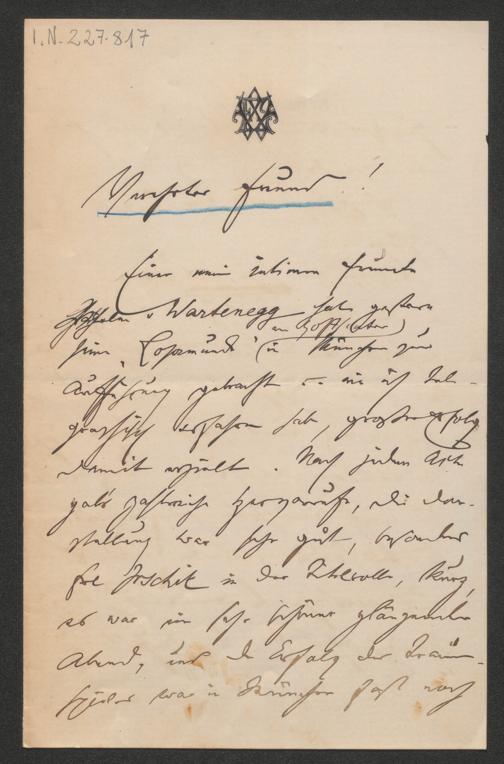 I.N. 227.817
Verehrter Freund!
Einer mein intimen Freunde
Wilhelm v Wartenegg hat gestern
seine „Rosamunde“ (am Hoftheater) in München zur
Aufführung gebracht u. wie ich tele-
graphisch erfahren habe, großen Erfolg
damit erzielt. Nach jedem Akt
gab's zahlreiche Hervorrufe, die Dar-
stellung war sehr gut, besonders
in der Titelrolle, kurz,
es war ein sehr schöner glänzender
Abend, und der Erfolg des Trauer-
spieles war in München fast noch